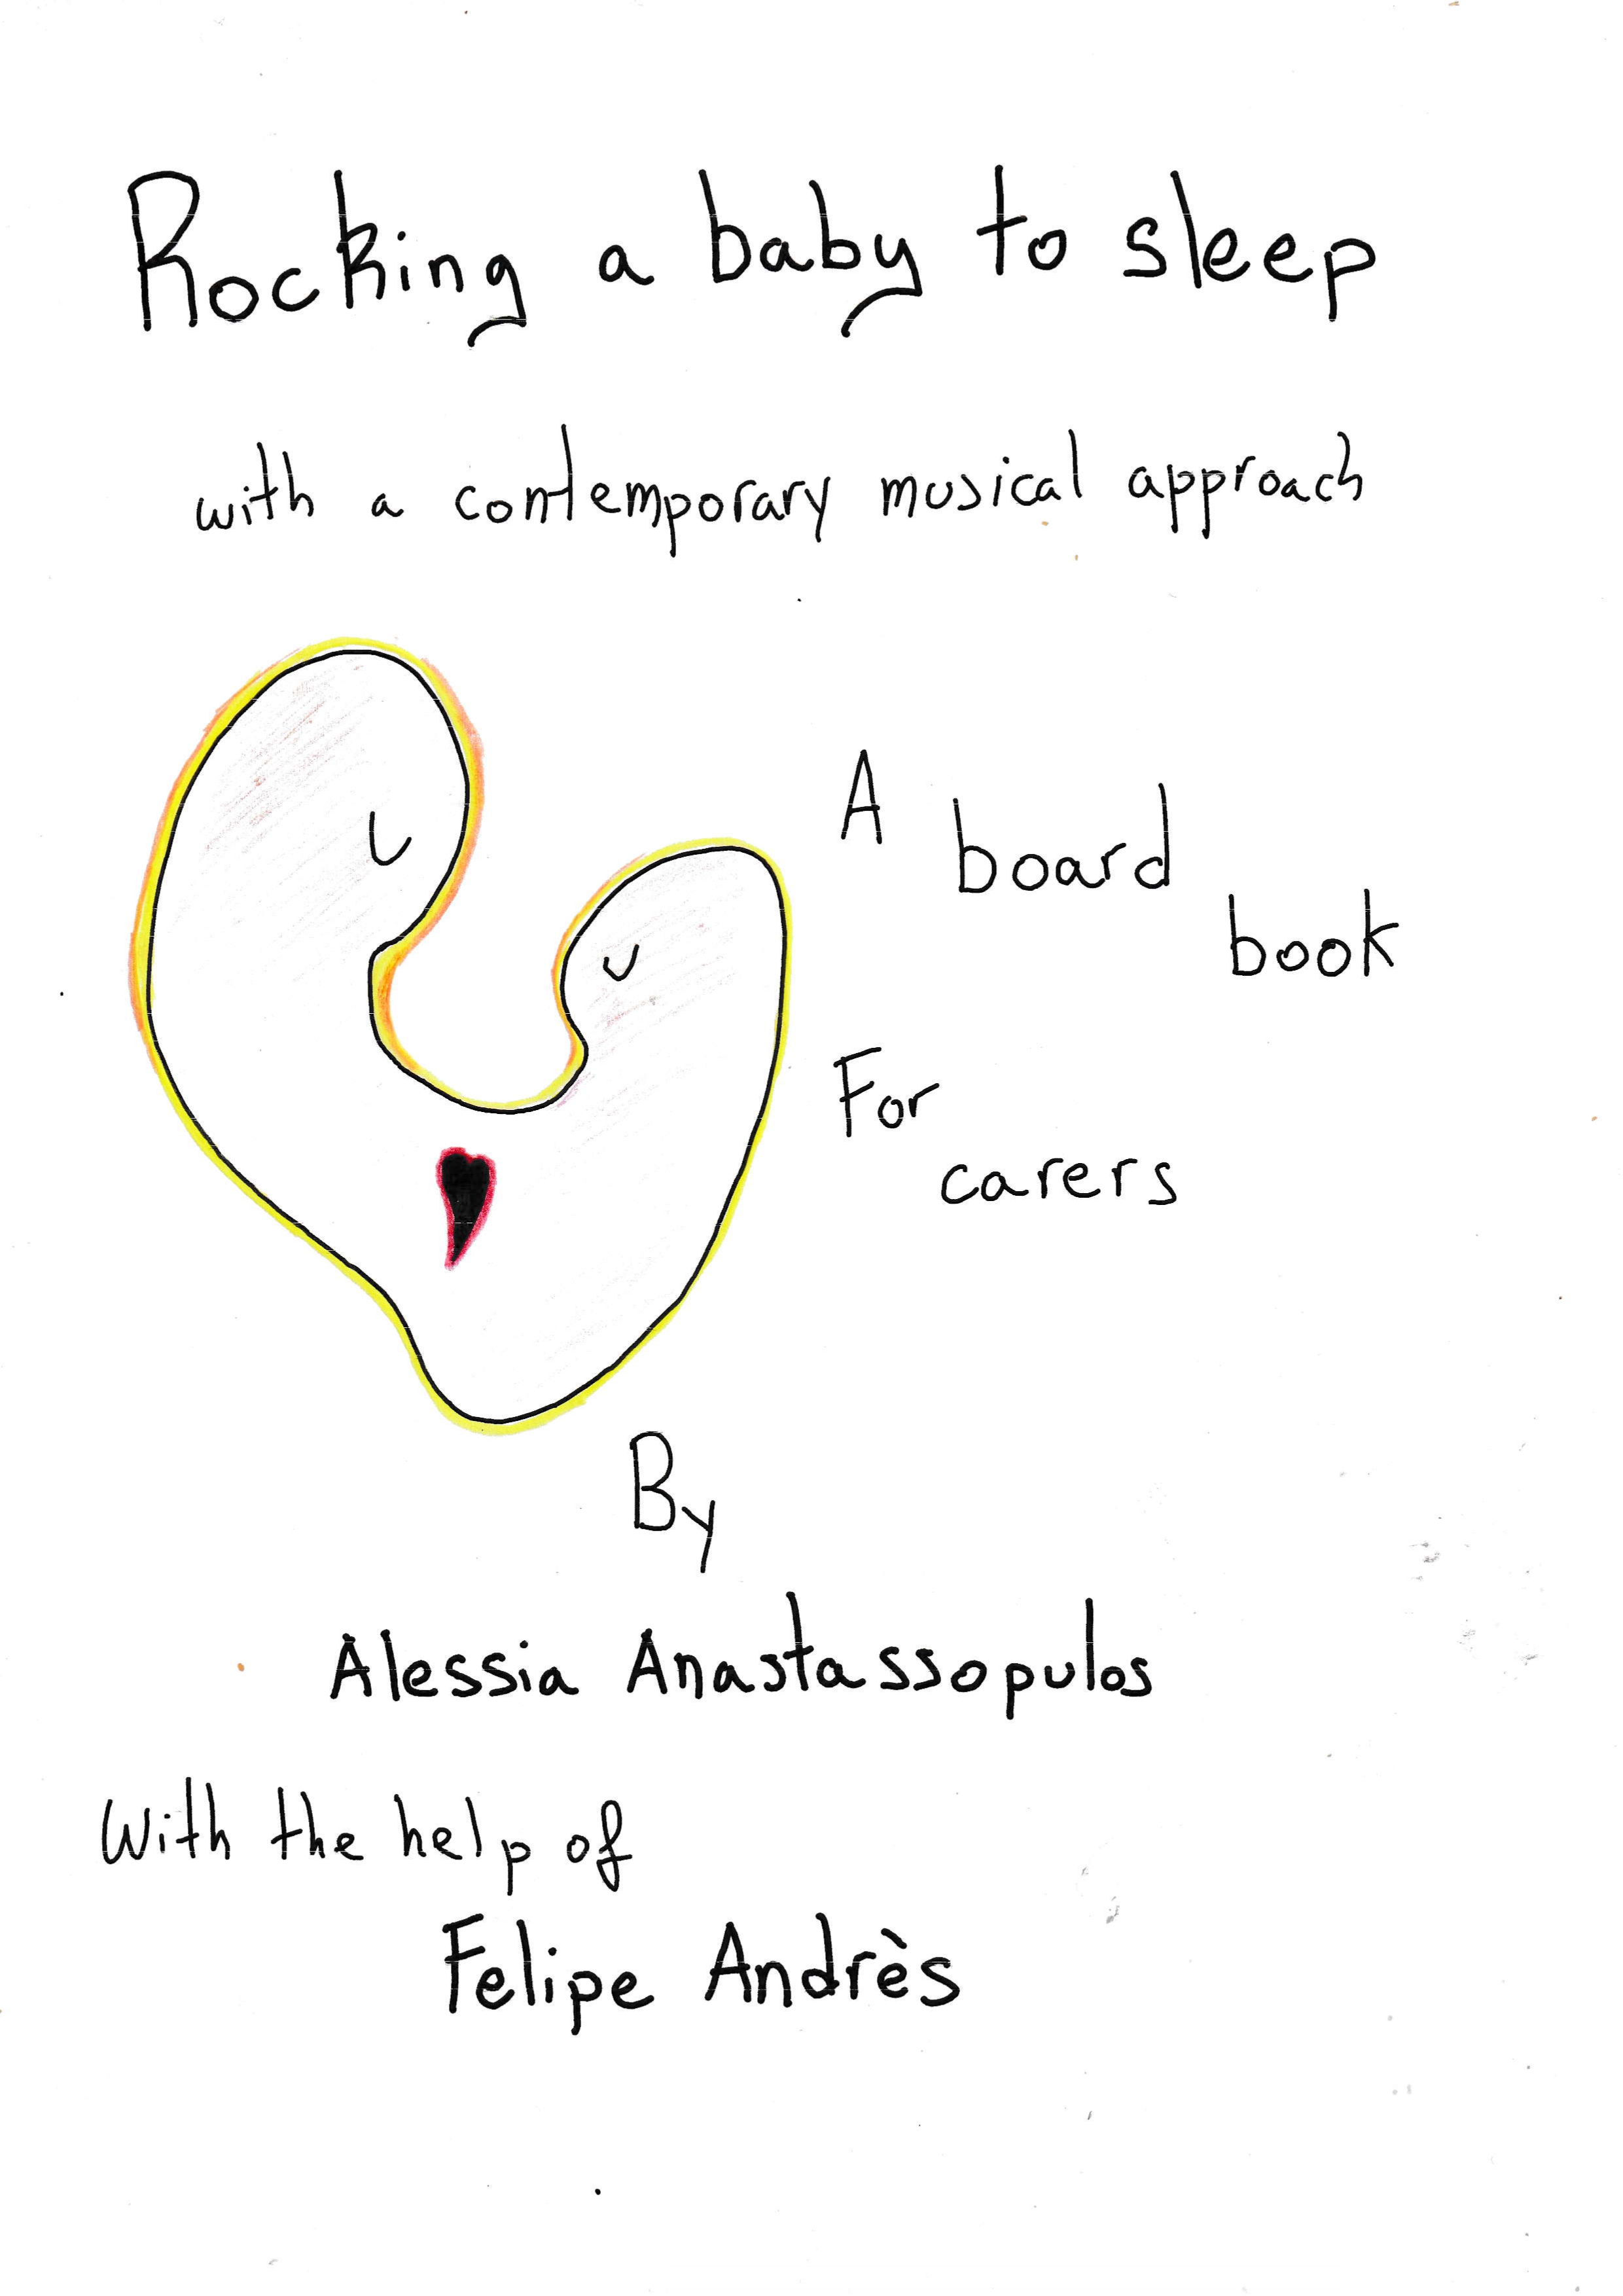 Rocking a baby to sleep
with a contemporary musical approach
A board book
For carers
By
Alessia Anastassopulos
With the help of
Felipe Andrès